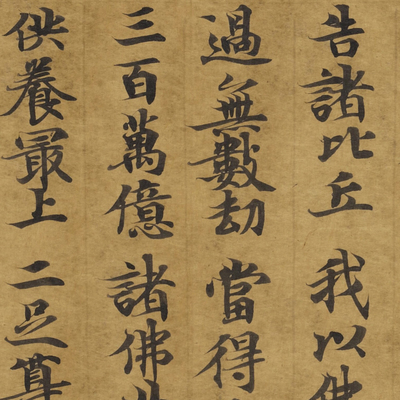 告諸比丘我以佛
過無數劫當得
三百萬億諸佛
供養最上二足尊